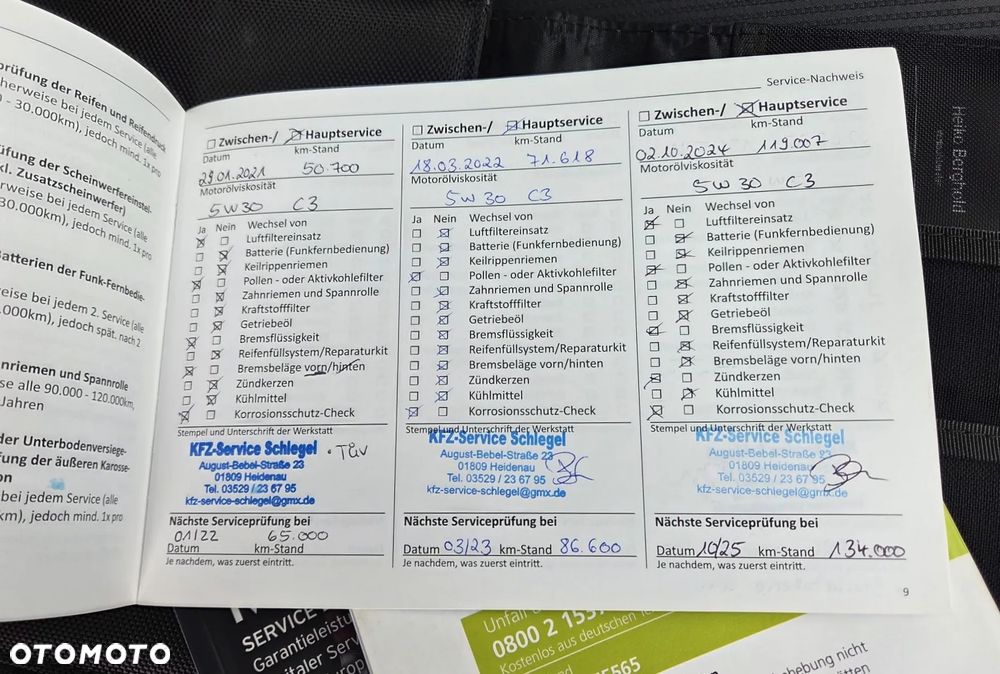 prüfung der Reifen und Reifendruck
herweise bei jedem Service (alle
0 - 30.000km), jedoch mind. 1x pro
üfung der Scheinwerfereinstel-
kl. Zusatzscheinwerfer)
erweise bei jedem Service (alle
30.000km), jedoch mind. 1x pro
Batterien der Funk-Fernbedie-
weise bei jedem 2. Service (alle
.000km), jedoch spät. nach 2
nriemen und Spannrolle
se alle 90.000 - 120.000km,
Jahren
der Unterbodenversiege-
fung der äußeren Karosse-
on
bei jedem Service (alle
km), jedoch mind. 1x pro
Service-Nachweis
Zwischen-/ Hauptservice
Datum km-Stand
29.01.2021 50.700
Motorölviskosität
5W30 C3
Ja Nein Wechsel von
Luftfiltereinsatz
Batterie (Funkfernbedienung)
Keilrippenriemen
Pollen - oder Aktivkohlefilter
Zahnriemen und Spannrolle
Kraftstofffilter
Getriebeöl
Bremsflüssigkeit
Reifenfüllsystem/Reparaturkit
Bremsbeläge vorn/hinten
Zündkerzen
Kühlmittel
Korrosionsschutz-Check
Stempel und Unterschrift der Werkstatt
KFZ-Service Schlegel • TÜV
August-Bebel-Straße 23
01809 Heidenau
Tel. 03529 / 23 67 95
kfz-service-schlegel@gmx.de
Nächste Serviceprüfung bei
01/22 65.000
Datum km-Stand
Je nachdem, was zuerst eintritt.
Zwischen-/ Hauptservice
Datum km-Stand
18.03.2022 71.618
Motorölviskosität
5W30 C3
Ja Nein Wechsel von
Luftfiltereinsatz
Batterie (Funkfernbedienung)
Keilrippenriemen
Pollen - oder Aktivkohlefilter
Zahnriemen und Spannrolle
Kraftstofffilter
Getriebeöl
Bremsflüssigkeit
Reifenfüllsystem/Reparaturkit
Bremsbeläge vorn/hinten
Zündkerzen
Kühlmittel
Korrosionsschutz-Check
Stempel und Unterschrift der Werkstatt
KFZ-Service Schlegel
August-Bebel-Straße 23
01809 Heidenau
Tel. 03529 / 23 67 95
kfz-service-schlegel@gmx.de
Nächste Serviceprüfung bei
Datum 03/23 km-Stand 86.600
Je nachdem, was zuerst eintritt.
Zwischen-/ Hauptservice
Datum km-Stand
02.10.2024 119.007
Motorölviskosität
5W30 C3
Ja Nein Wechsel von
Luftfiltereinsatz
Batterie (Funkfernbedienung)
Keilrippenriemen
Pollen - oder Aktivkohlefilter
Zahnriemen und Spannrolle
Kraftstofffilter
Getriebeöl
Bremsflüssigkeit
Reifenfüllsystem/Reparaturkit
Bremsbeläge vorn/hinten
Zündkerzen
Kühlmittel
Korrosionsschutz-Check
Stempel und Unterschrift der Werkstatt
KFZ-Service Schlegel
August-Bebel-Straße 23
01809 Heidenau
Tel. 03529 / 23 67 95
kfz-service-schlegel@gmx.de
Nächste Serviceprüfung bei
Datum 10/25 km-Stand 134.000
Je nachdem, was zuerst eintritt.
9
Heiko Berghold
SERVICE
Garantieleistu
italer Serv
Unfall
0800 2 153
Kostenlos aus deutschen
5565
hebung nicht
OTOMOTO